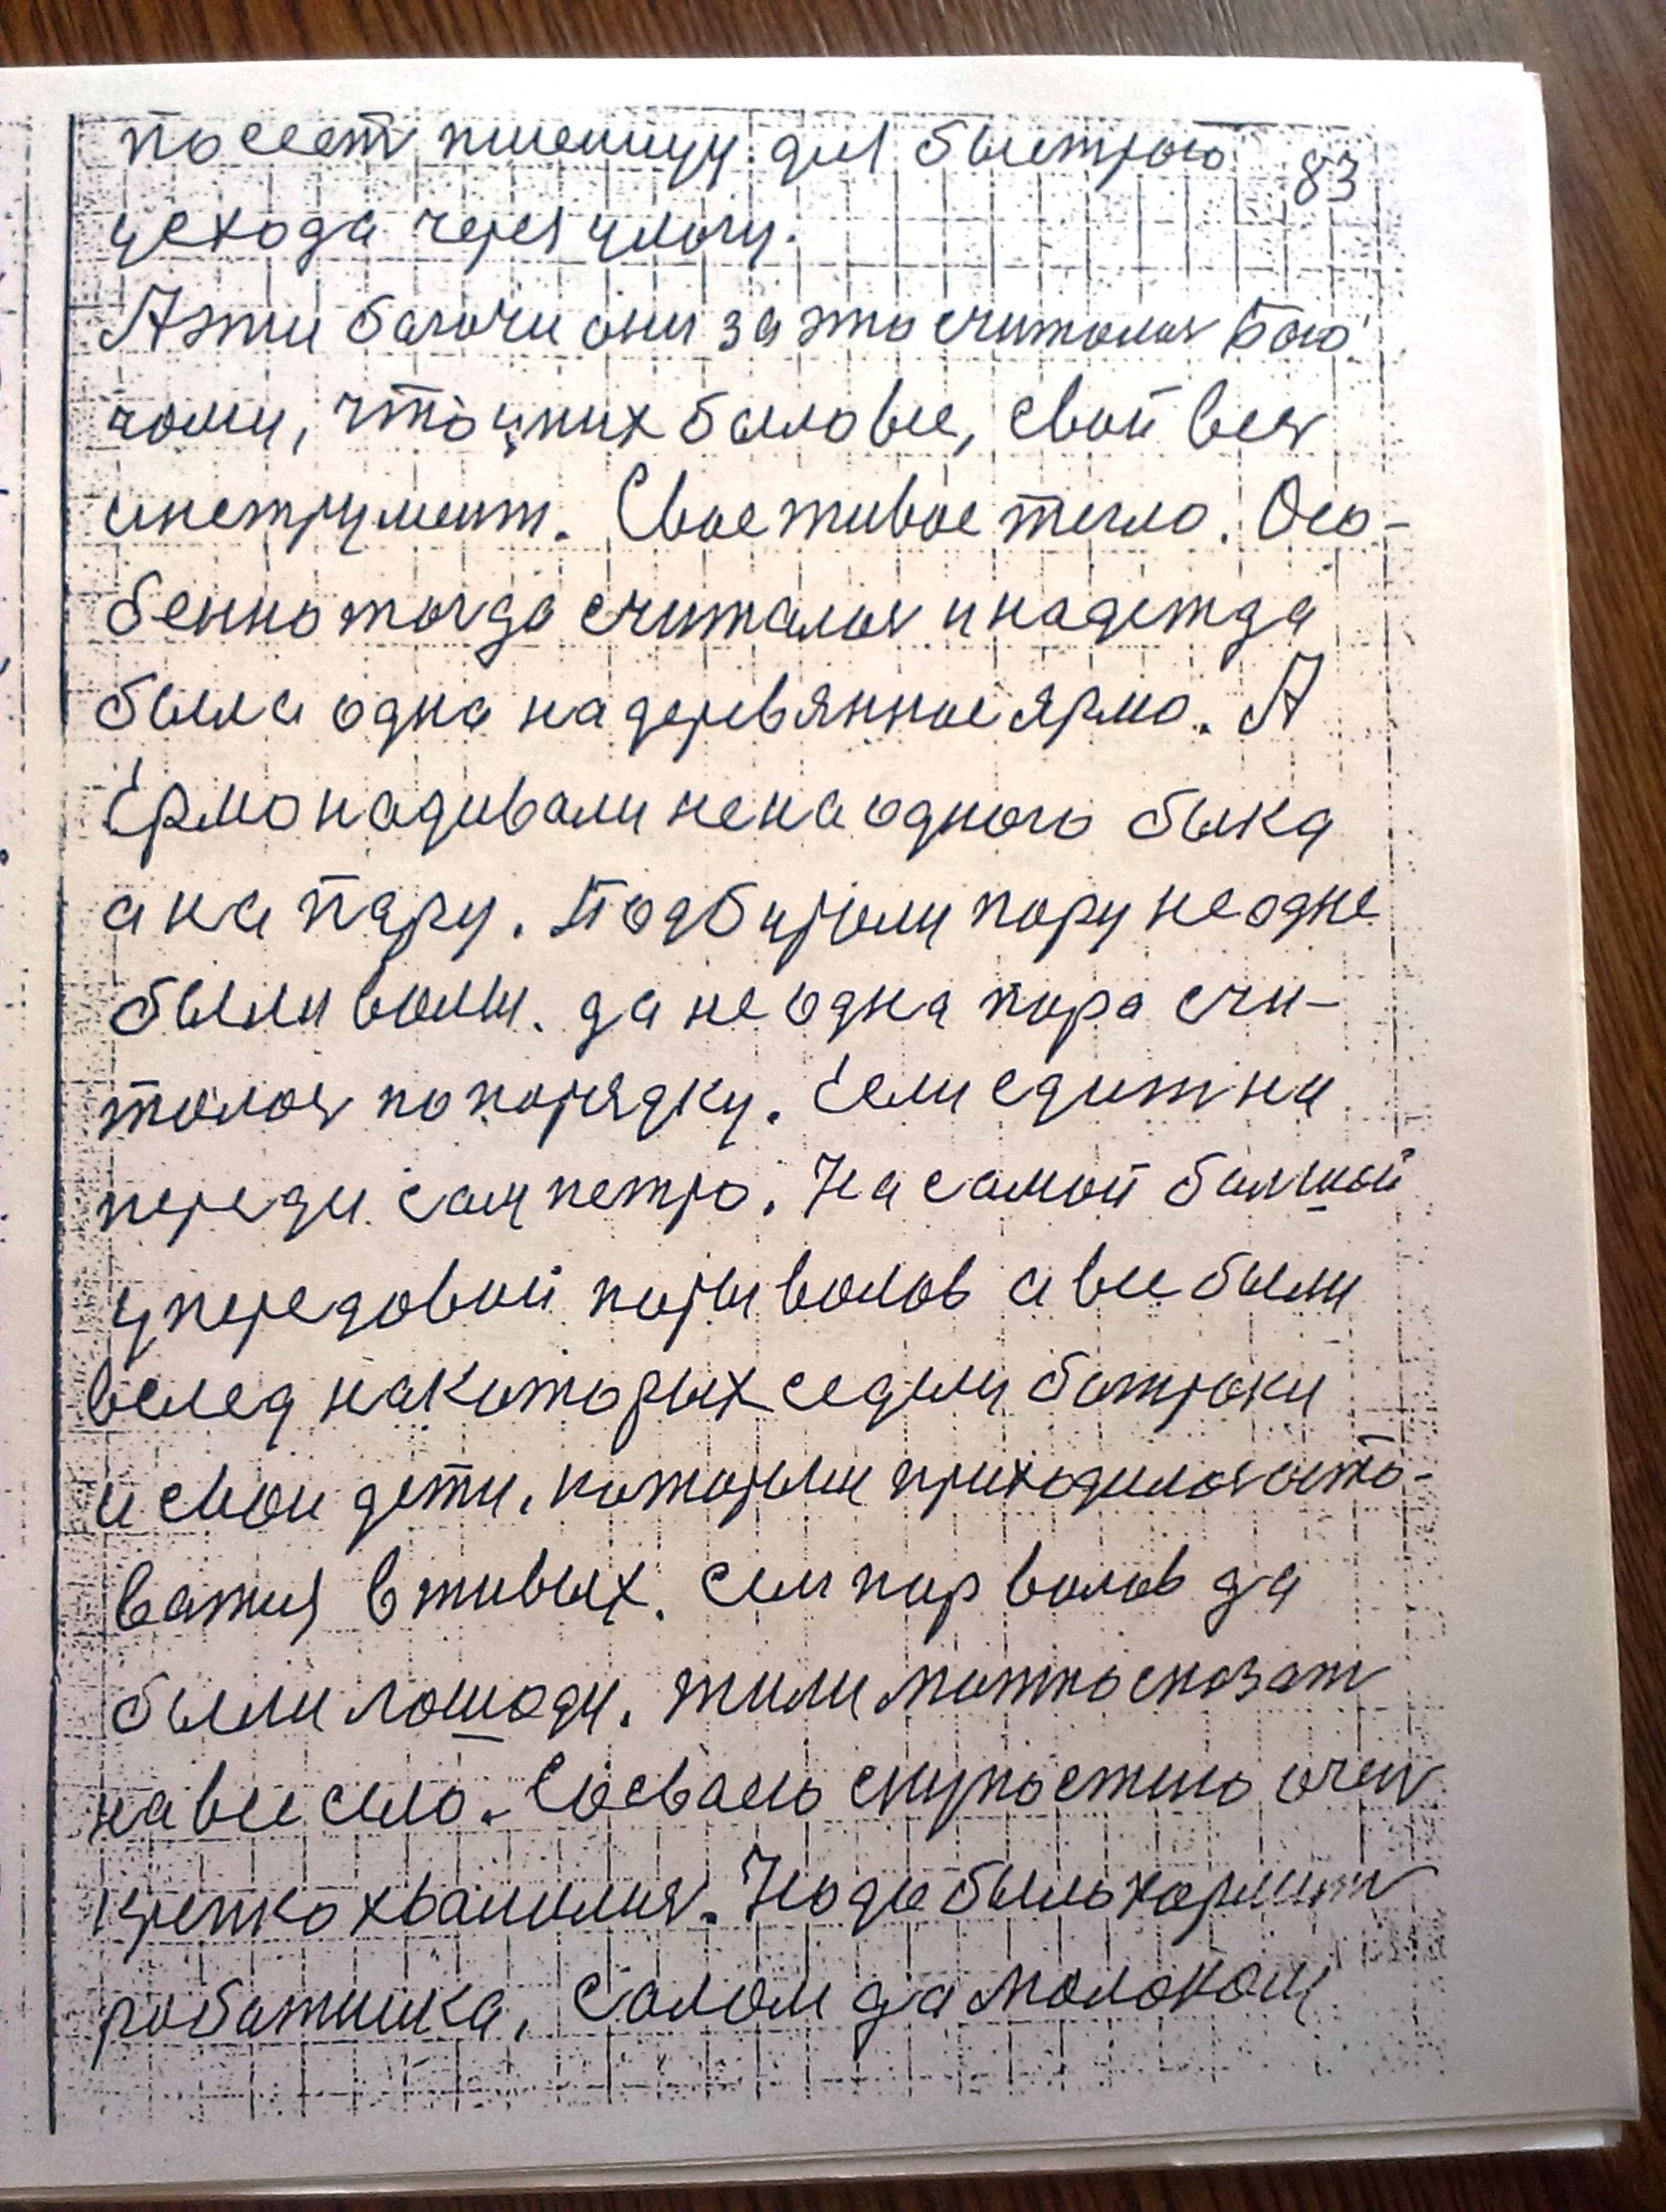 посеет пшеницу для быстрого 83
усхода через улогу.
А эти богачи они за это считалися Бого
чоми, что у них было все, свой весь
инструмент. Свое живое тягло. Осо-
бенно тогда считалося и надежда
была одна на деревянное ярмо. А
Ермо надивали не на одного быка
а на пару. Подбирали пару не одне
были волы. да не одна пара счи-
талося по порядку. Если едит на
переди сам петро. На самой балшой
у передовой пары волов а все были
вслед на которых седели батраки
и свои дети, которым приходилося осто-
ватися в живых. сем пар волов да
были лошади. жили можно сказат
на все село. Со своею скупостию очен
крепко хвалилися. Надо было кормит
работника, салом да молоком